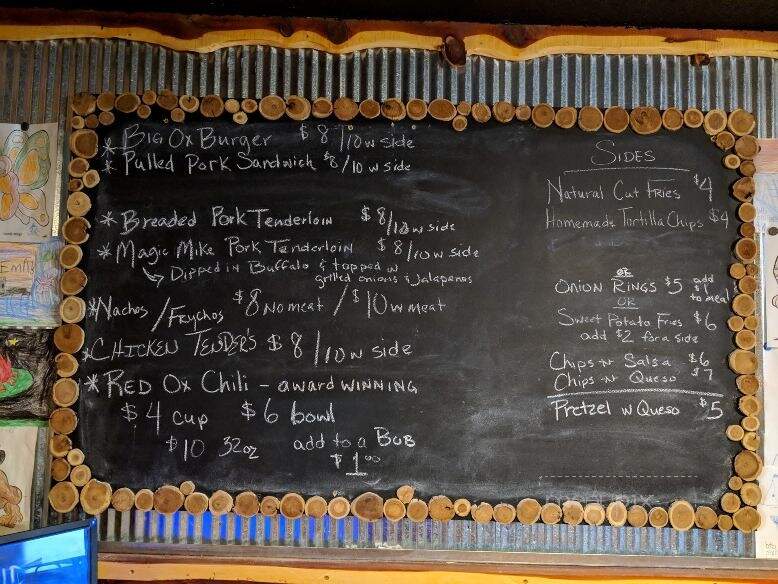 * Big Ox Burger $8/10 w side
* Pulled Pork Sandwich $8/10 w side
* Breaded Pork Tenderloin $8/10 w side
* Magic Mike Pork Tenderloin $8/10 w side
Dipped in Buffalo & topped w
grilled onions & Jalapenos
* Nachos/Frychos $8 no meat / $10 w meat
* Chicken Tender's $8/10 w side
* Red Ox Chili - award winning
$4 cup $6 bowl
$10 32oz add to a Bub
$1.00
Sides
Natural Cut Fries $4
Homemade Tortilla Chips $4
or
Onion Rings $5 add $1 to meal
or
Sweet Potato Fries $6
add $2 for a side
Chips-n-Salsa $6
Chips-n-Queso $7
Pretzel w Queso $5